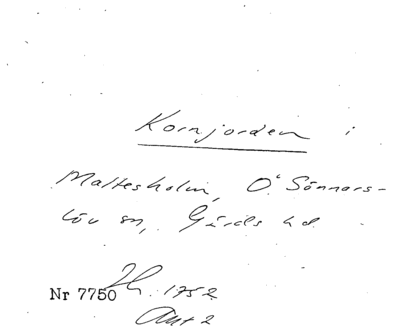 Kornjorden i
Maltesholm, Ö. Sönnars-
löv sn, Gärds hd.
Nr 7750
1752